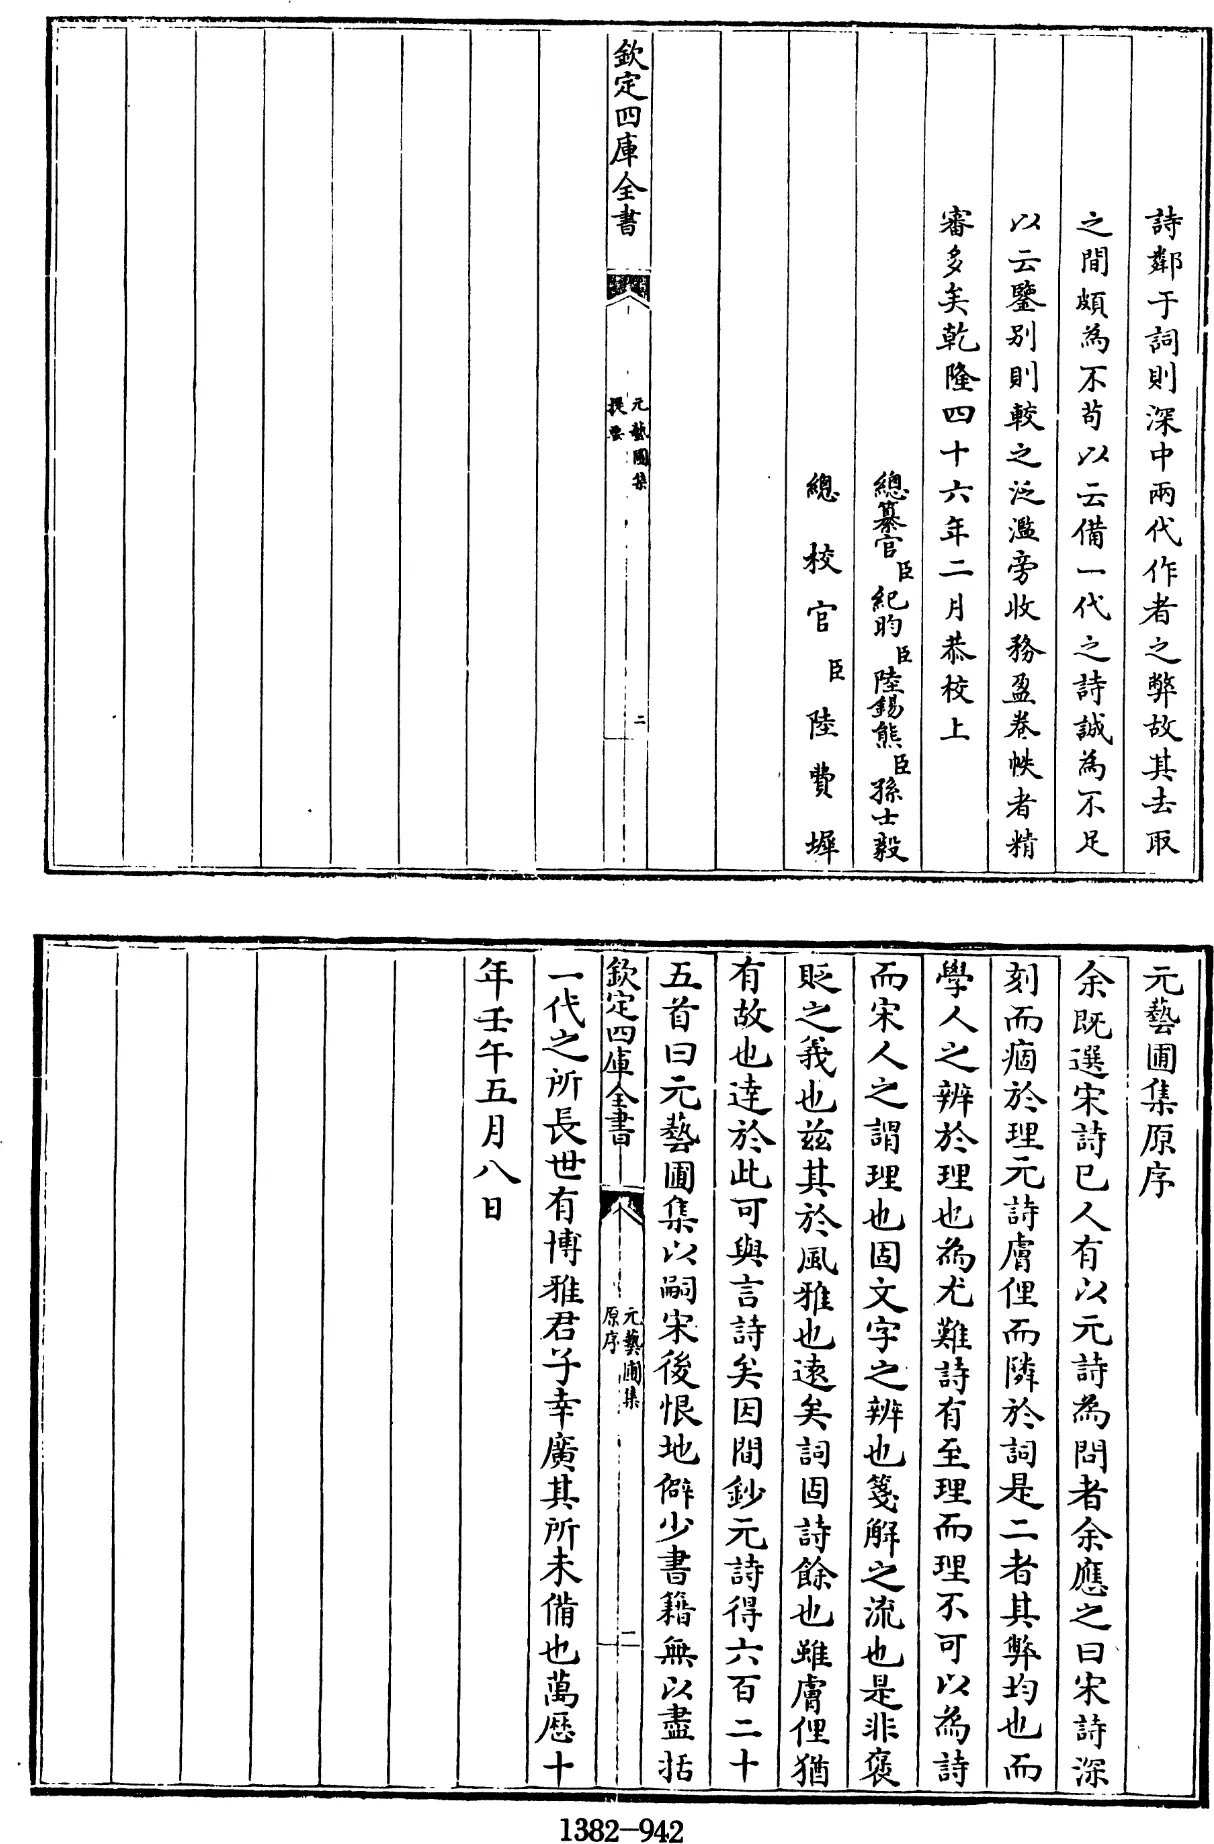 詩鄰于詞則深中兩代作者之弊故其去取
之間頗為不苟以云備一代之詩誠為不足
以云鑒別則較之泛濫旁收務盈卷帙者精
審多矣乾隆四十六年二月恭校上
總纂官臣紀昀臣陸錫熊臣孫士毅
總校官臣陸費墀
欽定四庫全書
元藝圃集
提要
二
元藝圃集原序
余既選宋詩已人有以元詩為問者余應之曰宋詩深
刻而痼於理元詩膚俚而隣於詞是二者其弊均也而
學人之辨於理也為尤難詩有至理而理不可以為詩
而宋人之謂理也固文字之辨也箋解之流也是非褒
貶之義也茲其於風雅也遠矣詞固詩餘也雖膚俚猶
有故也達於此可與言詩矣因間鈔元詩得六百二十
五首曰元藝圃集以嗣宋後恨地僻少書籍無以盡括
欽定四庫全書
元藝圃集
原序
一
一代之所長世有博雅君子幸廣其所未備也萬歷十
年壬午五月八日
1382-942